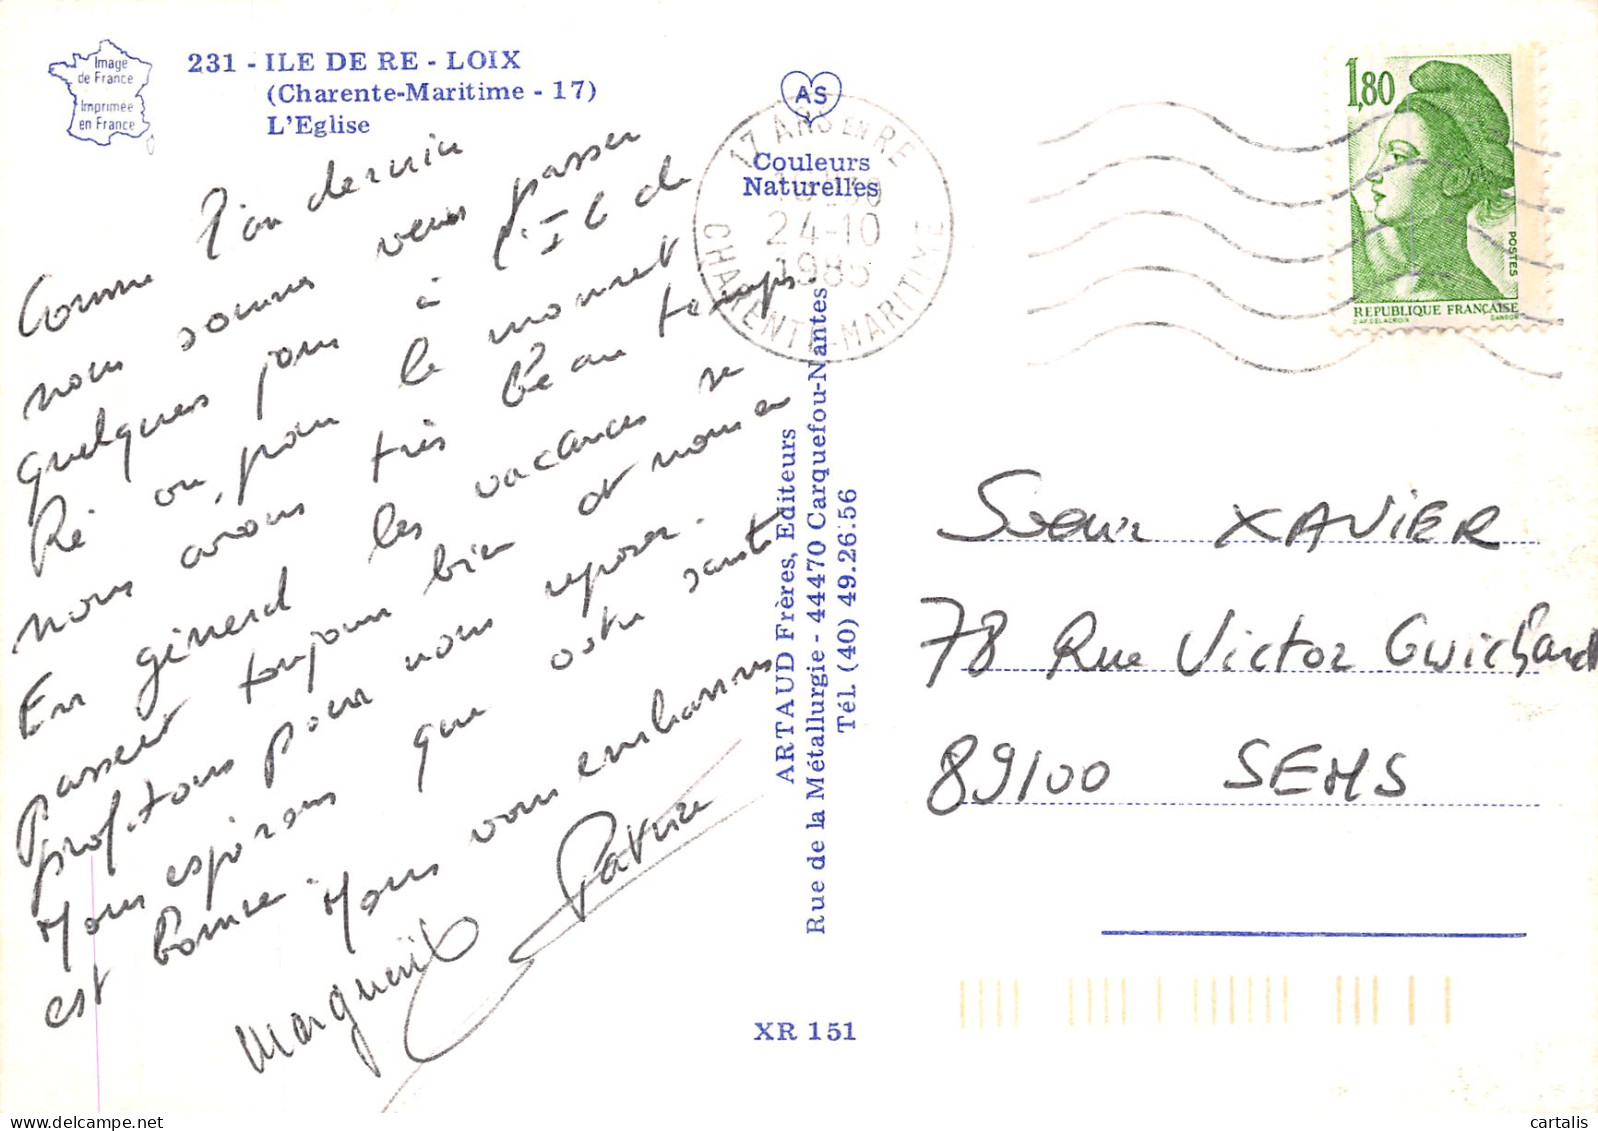 Image
de France
Imprimée
en France
231 - ILE DE RE - LOIX
(Charente-Maritime - 17)
L'Eglise
Comme l'an dernier
nous sommes venus passer
quelques jours à l'Ile de
Ré où, pour le moment
nous avons très beau temps
En général les vacances se
passent toujours bien et nous en
profitons pour nous reposer.
Nous espérons que votre santé
est bonne. Nous vous embrassons
Marguerite Patrice
AS
Couleurs
Naturelles
17 ARS EN RE
24-10
1985
CHARENTE-MARITIME
ARTAUD Frères, Editeurs
Rue de la Métallurgie - 44470 Carquefou-Nantes
Tél. (40) 49.26.56
XR 151
1,80
POSTES
REPUBLIQUE FRANÇAISE
D'AP. DELACROIX GANDON
Soeur XAVIER
78 Rue Victor Guichard
89100 SENS
cartalis